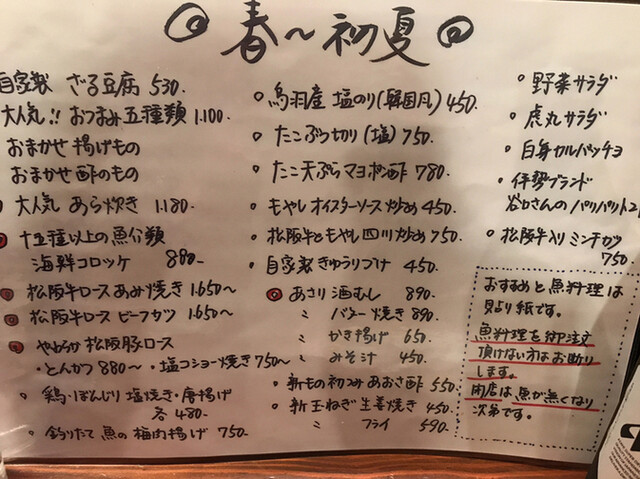 春〜初夏
自家製 ざる豆腐 530.
大人気!! おつまみ五種類 1.100.
おまかせ 揚げもの
おまかせ 酢のもの
大人気 あら炊き 1.180
十五種以上の魚介類
海鮮コロッケ 880
松阪牛ロース あみ焼き 1.650〜
松阪牛ロース ビーフカツ 1.650〜
やわらか 松阪豚ロース
・とんかつ 880〜・塩コショー焼き 750〜
鶏・ぼんじり 塩焼き・唐揚げ
各 480
釣りたて 魚の 梅肉揚げ 750.
鳥羽産 塩のり(韓国風) 450.
たこぶつ切り(塩) 750.
たこ天ぷら マヨポン酢 780
もやし オイスターソース炒め 450
松阪牛ともやし四川炒め 750
自家製 きゅうりづけ 450.
あさり 酒むし 890.
〃 バター焼き 890
〃 かき揚げ 650
〃 みそ汁 450
新もの 初つみ あおさ酢 550
新玉ねぎ 生姜焼き 450
〃 フライ 590
野菜サラダ
虎丸サラダ
白身カルパッチョ
伊勢ブランド
谷口さんの パリパリ
松阪牛入りミンチカツ
750
おすすめと魚料理は
貼り紙です。
魚料理を御注文
頂けない方はお断り
します。
閉店は魚が無くなり
次第です。